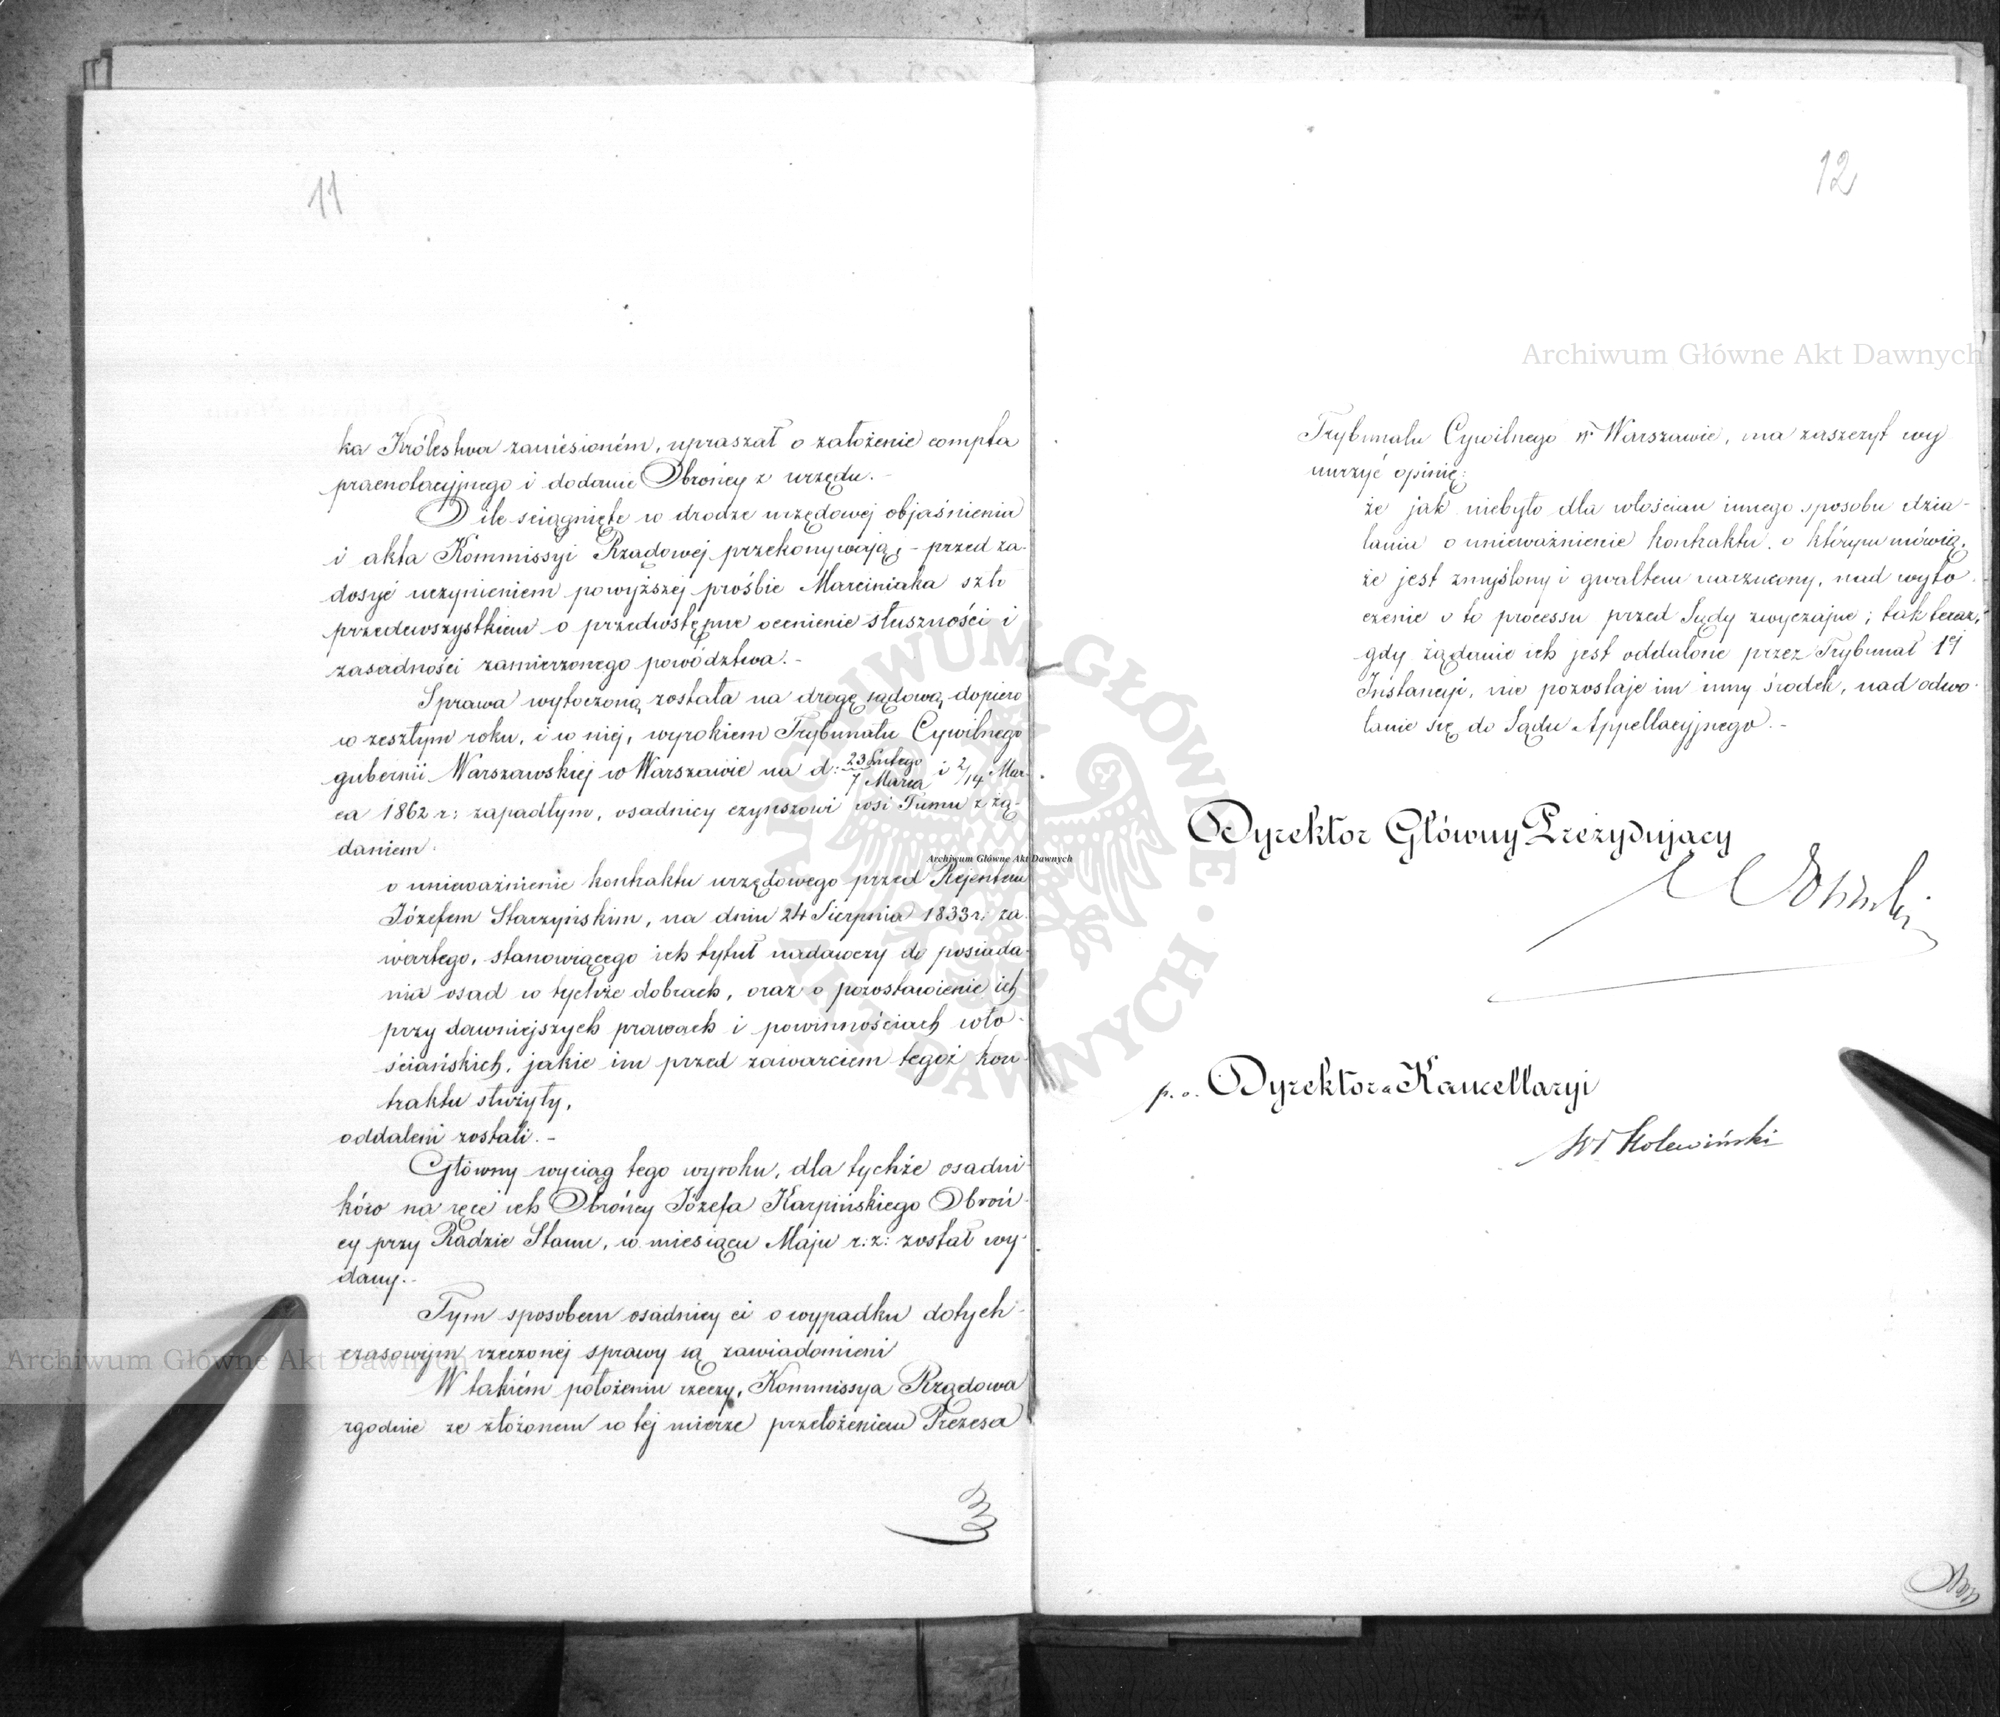 11
ka Królestwa zaniesioném, upraszał o założenie compta
praenotacyjnego i dodanie Obrońcy z urzędu.-
O ile ściągnięte w drodze urzędowej objaśnienia
i akta Kommissyi Rządowej przekonywają,- przed za-
dosyć uczynieniem powyższej prośbie Marciniaka szło
przedewszystkiem o przedwstępne ocenienie słuszności i
zasadności zamierzonego powództwa.-
Sprawa wytoczoną została na drogę sądową dopiero
w zeszłym roku, i w niéj, wyrokiem Trybunału Cywilnego
gubernii Warszawskiej w Warszawie na d: 23 Lutego/7 Marca i 2/14 Mar-
ca 1862 r: zapadłym, osadnicy czynszowi wsi Tumu z żą-
daniem:
o unieważnienie kontraktu urzędowego przed Rejentem
Józefem Starzyńskim, na dniu 24 Sierpnia 1833 r: za-
wartego, stanowiącego ich tytuł nadawczy do posiada-
nia osad w tychże dobrach, oraz o pozostawienie ich
przy dawniejszych prawach i powinnościach wło-
ściańskich, jakie im przed zawarciem tegoż kon-
traktu służyły,
oddaleni zostali.-
Główny wyciąg tego wyroku, dla tychże osadni-
ków na ręce ich Obrońcy Józefa Karpińskiego Obroń-
cy przy Radzie Stanu, w miesiącu Maju r: z: został wy-
dany.-
Tym sposobem osadnicy ci o wypadku dotych-
czasowym rzeczonej sprawy są zawiadomieni
W takiém położeniu rzeczy, Kommissya Rządowa
zgodnie ze złożonem w tej mierze przełożeniem Prezesa
12
Trybunału Cywilnego w Warszawie, ma zaszczyt wy
nurzyć opinię:
że jak niebyło dla włościan innego sposobu dzia-
łania o unieważnienie kontraktu, o którym mówią,
że jest zmyślony i gwałtem narzucony, nad wyto-
czenie o to processu przed Sądy zwyczajne; tak teraz,
gdy żądanie ich jest oddalone przez Trybunał 1ej
Instancyi, nie pozostaje im inny środek, nad odwo-
łanie się do Sądu Appellacyjnego.-
Dyrektor Główny Prezydujący
p. o. Dyrektora Kancellaryi
Wł Holewiński
Archiwum Główne Akt Dawnych
Archiwum Główne Akt Dawnych
Archiwum Główne Akt Dawnych
ARCHIWUM GŁÓWNE AKT DAWNYCH